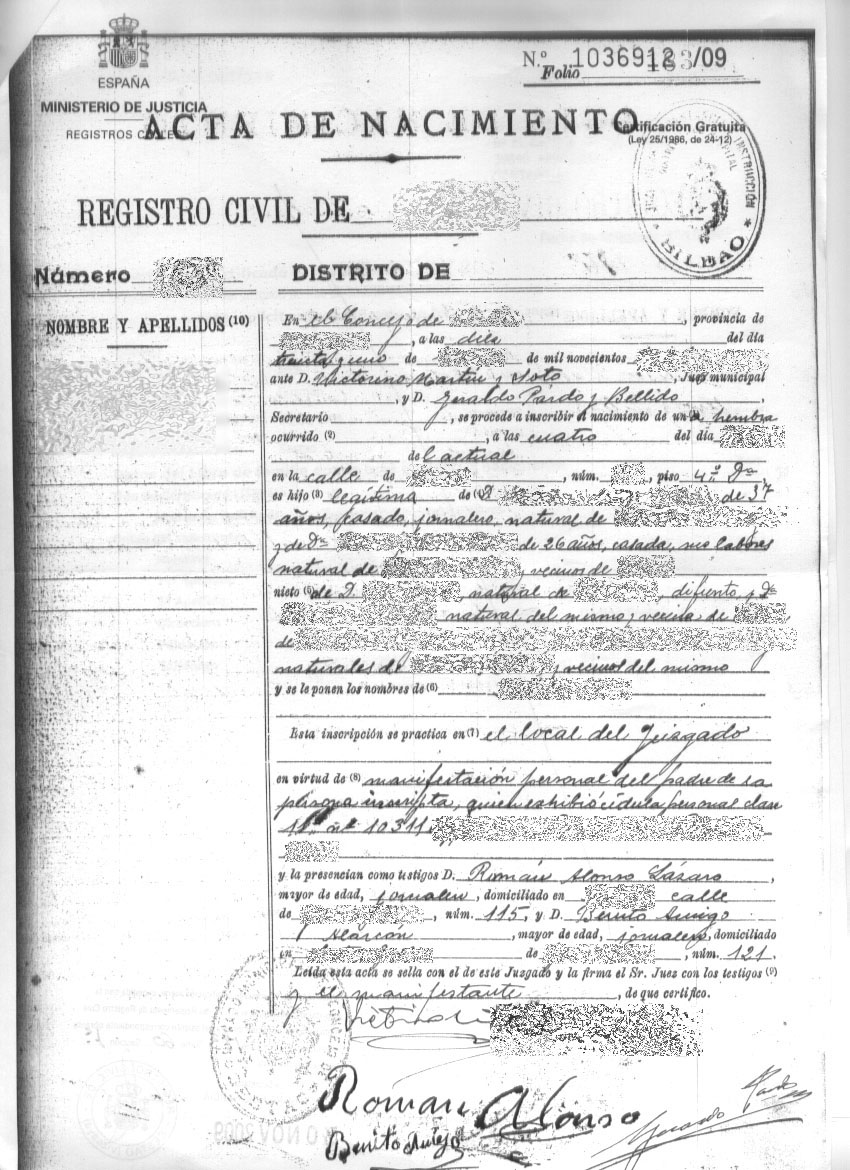 ESPAÑA
MINISTERIO DE JUSTICIA
REGISTROS CIVILES
N.º 1036912/09
Folio 183
ACTA DE NACIMIENTO
Certificación Gratuita
(Ley 25/1986, de 24-12)
BILBAO
REGISTRO CIVIL DE
Número
DISTRITO DE
NOMBRE Y APELLIDOS (10)
En el Concejo de , provincia de
, a las diez del día
treinta y uno de de mil novecientos
ante D. Victorino Martín y Soto , Juez municipal
, y D. Geraldo Pardo y Bellido
Secretario , se procede a inscribir el nacimiento de una hembra
ocurrido (2) , a las cuatro del día
del actual
en la calle de , núm. , piso 4º Dª
es hijo (3) legítima de D. de 37
años, casado, jornalero, natural de
y de Dª de 26 años, casada, sus labores
natural de y vecinos de
nieto de D. natural de , difunto, y Dª
natural del mismo y vecina de
de
naturales de y vecinos del mismo
y se le ponen los nombres de (6)
Esta inscripción se practica en (7) el local del Juzgado
en virtud de (8) manifestación personal del padre de la
persona inscripta, quien exhibió cédula personal clase
11ª nº 10311
y la presencian como testigos D. Román Alonso Lázaro ,
mayor de edad, jornalero , domiciliado en calle
de , núm. 115, y D. Benito Amigo
Alarcón , mayor de edad, jornalero, domiciliado
en de , núm. 121.
Leída esta acta se sella con el de este Juzgado y la firma el Sr. Juez con los testigos (9)
y el manifestante , de que certifico.
Román Alonso
Benito Amigo
Gerardo Pardo
NOV 2009